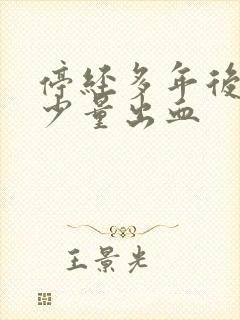 停经多年後
少量出血
王景光